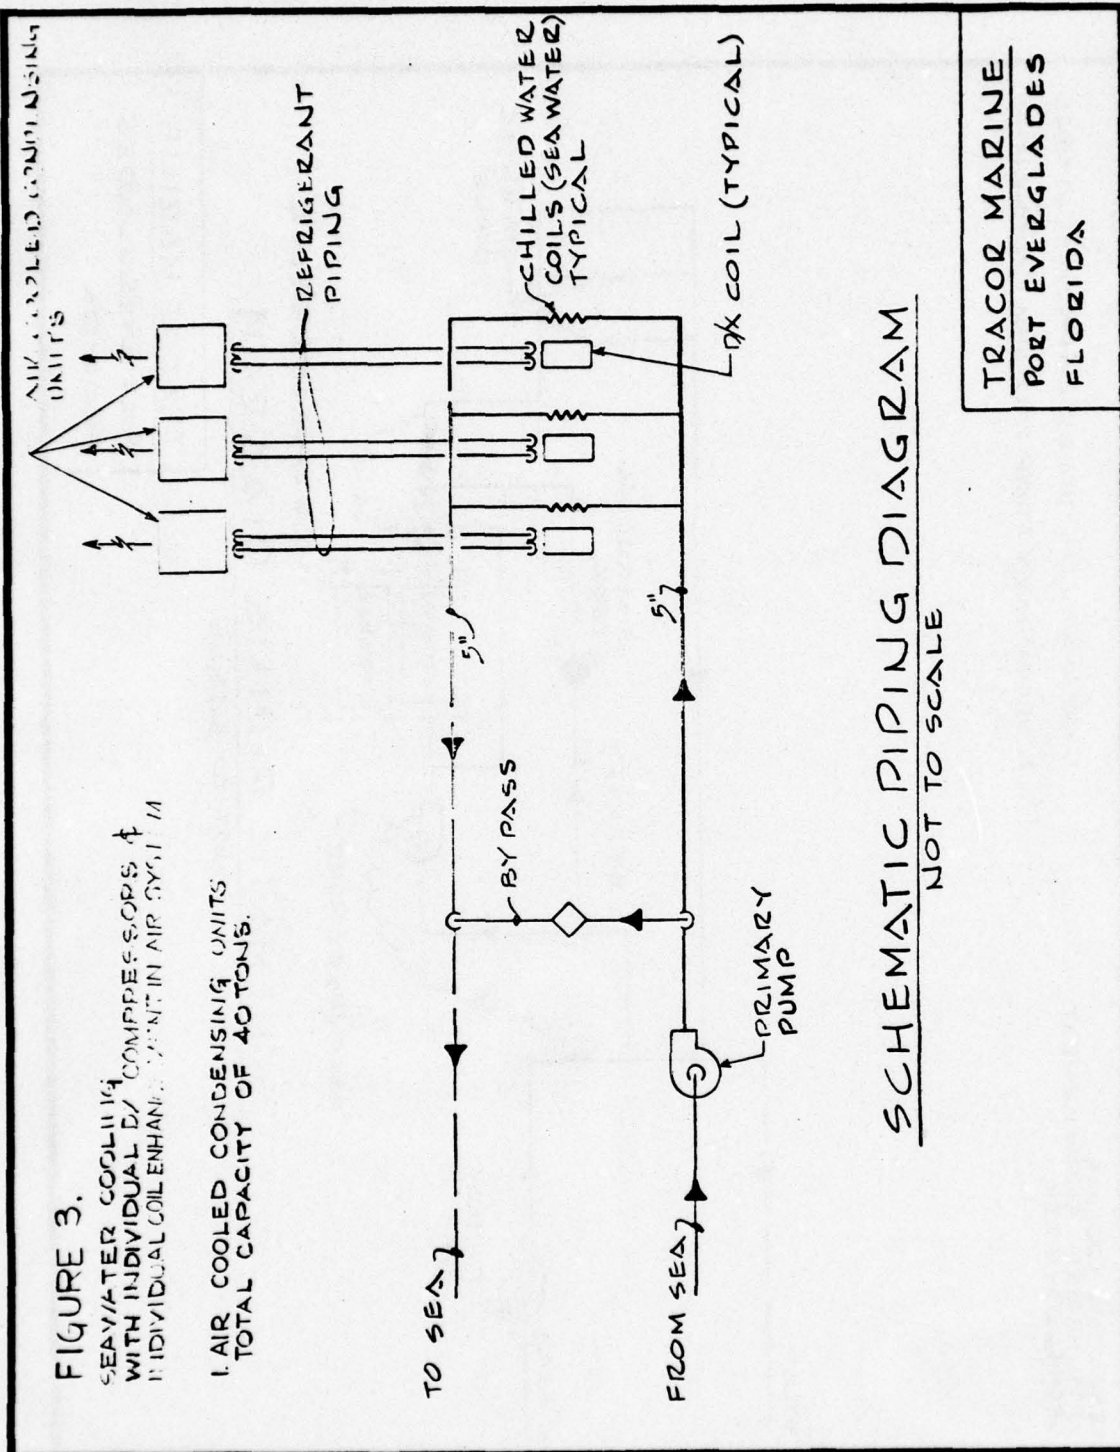 FIGURE 3.
SEAWATER COOLING
WITH INDIVIDUAL D/ COMPRESSORS &
INDIVIDUAL COIL ENHANCEMENT IN AIR SYSTEM
1. AIR COOLED CONDENSING UNITS
TOTAL CAPACITY OF 40 TONS.
AIR COOLED CONDENSING
UNITS
REFRIGERANT
PIPING
CHILLED WATER
COILS (SEAWATER)
TYPICAL
D/X COIL (TYPICAL)
5"
5"
BYPASS
TO SEA
FROM SEA
PRIMARY
PUMP
SCHEMATIC PIPING DIAGRAM
NOT TO SCALE
TRACOR MARINE
PORT EVERGLADES
FLORIDA